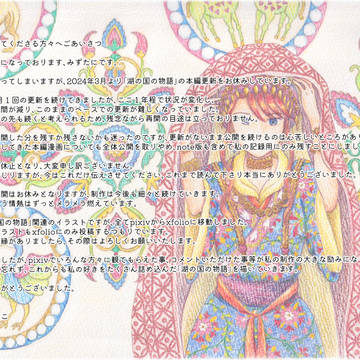 てくださる方々へごあいさつ
になっております、みずたにです。
ってしまいますが、2024年3月より「湖の国の物語」の本編更新をお休みしています。
月1回の更新を続けてきましたが、ここ1年程で状況が変化し
間が減り、このままのペースでの更新が難しくなっていました。
の先も続くと考えられるため残念ながら再開の目途は立っておりません。
開した分を残すか残さないかも迷ったのですが、更新がないまま公開を続けるのは心苦しいところがあり
してきた本編漫画についても全体公開を取りやめ、note版も含めて私の記録用にのみ残すことにしまし
休止となり、大変申し訳ございません。
じりますが、今はこれだけ伝えさせてください。これまで読んで下さり本当にありがとうございました。
開はお休みとなりますが、制作は今後も細々と続けていきます。
う情熱はずっとメラメラ燃えています。
国の物語」関連のイラストですが、全てpixivからxfolioに移動しました。
ラストもxfolioにのみ投稿するつもりでいます。
縁がありましたら、その際はよろしくお願いいたします。
したが、pixivでいろんな方々に観てもらえた事、コメントいただけた事等が私の制作の大きな励みにな
忘れず、これからも私の好きをたくさん詰め込んだ「湖の国の物語」を描いていきます。
がとうございました。
こ